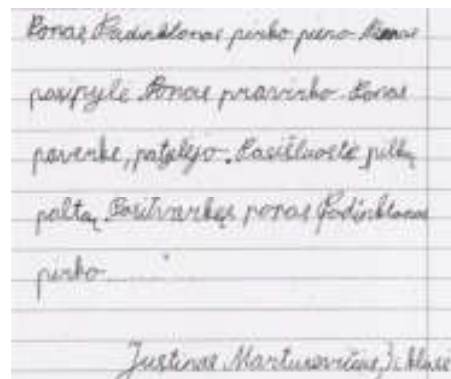 Ponas Padinktonas pirko pieno. Pienas
pasipylė. Ponas pravirko. Ponas
paverkė, patylėjo. Pasišluostė pilką
paltą. Pasitvarkęs ponas Padinktonas
pirko..........
Justinas Marturevičius, klasė